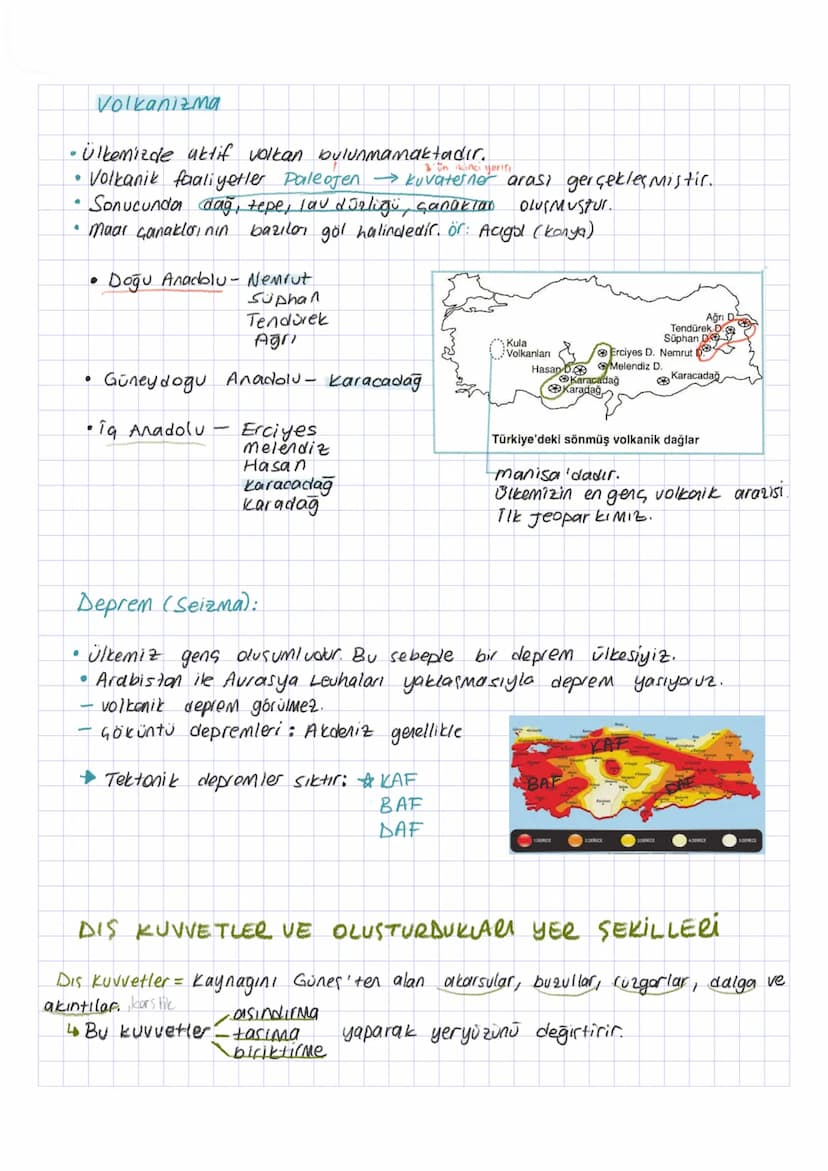 Volkanizma
• Ülkemizde aktif volkan bulunmamaktadır.
3'ün ikinci yarısı
• Volkanik faaliyetler Paleojen → kuvaterner arası gerçekleşmiştir.
• Sonucunda dağ, tepe, lav düzlüğü, çanaklar oluşmuştur.
• maar çanaklarının bazıları göl halindedir. ör: Acıgöl (konya)
• Doğu Anadolu - Nemrut
Süphan
Tendürek
Ağrı
• Güneydoğu Anadolu - Karacadağ
• İç Anadolu - Erciyes
melendiz
Hasan
Karacadağ
Karadağ
Ağrı D.
Tendürek D.
Süphan D.
Kula
Volkanları
Erciyes D. Nemrut D.
Hasan D.
Melendiz D.
Karacadağ
Karacadağ
Karadağ
Türkiye'deki sönmüş volkanik dağlar
manisa'dadır.
Ülkemizin en genç volkanik arazisi.
İlk Jeoparkımız.
Deprem (Seizma):
• Ülkemiz genç oluşumludur. Bu sebeple bir deprem ülkesiyiz.
• Arabistan ile Avrasya Levhaları yaklaşmasıyla deprem yaşıyoruz.
- volkanik deprem görülmez.
- Çöküntü depremleri: Akdeniz genellikle
→ Tektonik depremler sıktır: ☆ KAF
BAF
DAF
KAF
BAF
DAF
1.DERECE 2.DERECE 3.DERECE 4.DERECE 5.DERECE
DIŞ KUVVETLER VE OLUŞTURDUKLARI YER ŞEKİLLERİ
Dış Kuvvetler = Kaynagını Güneş'ten alan akarsular, buzullar, rüzgarlar, dalga ve
akıntılar, karstik
aşındırma
↳ Bu kuvvetler - taşıma yaparak yeryüzünü değiştirir.
biriktirme